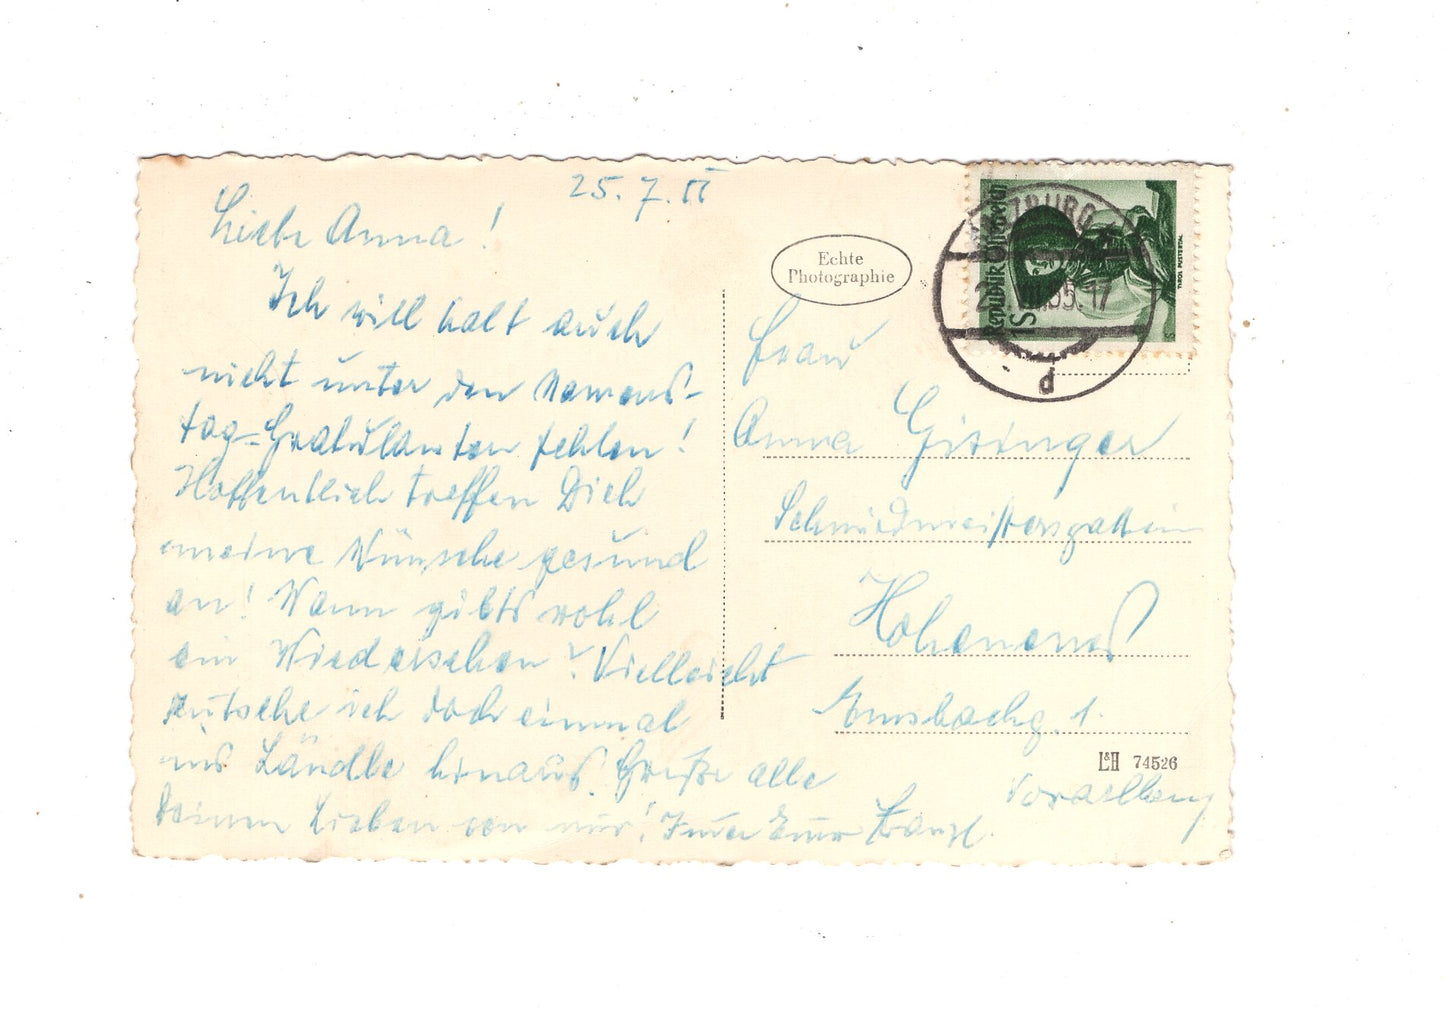 25.7.55
Liebe Anna!
Ich will halt auch
nicht unter den Namens-
tag-Gratulanten fehlen!
Hoffentlich treffen Dich
meine Wünsche gesund
an! Wann gibts wohl
ein Wiedersehen? Vielleicht
rutsche ich doch einmal
ins Ländle hinaus. Grüße alle
Deinen Lieben von mir! Immer Euer Franzl.
Echte
Photographie
Frau
Anna Gisinger
Schmiedmeistersgattin
Hohenems
Emsbachg. 1.
Vorarlberg
L&H 74526
SALZBURG
55.17
d
Republik Österreich
1S
TIROL PUSTERTAL